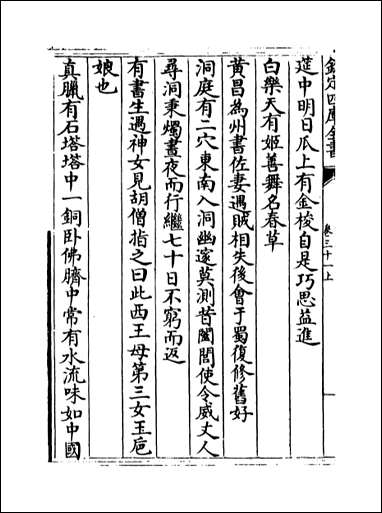 欽定四庫全書
卷三十一上
筵中明日瓜上有金梭自是巧思益進
白樂天有姬善舞名春草
黄昌為州書佐妻遇賊相失後會于蜀復修舊好
洞庭有二穴東南入洞幽邃莫測昔闔閭使令威丈人
尋洞秉燭晝夜而行繼七十日不窮而返
有書生遇神女見胡僧指之曰此西王母第三女玉卮
娘也
真臘有石塔塔中一銅卧佛臍中常有水流味如中國